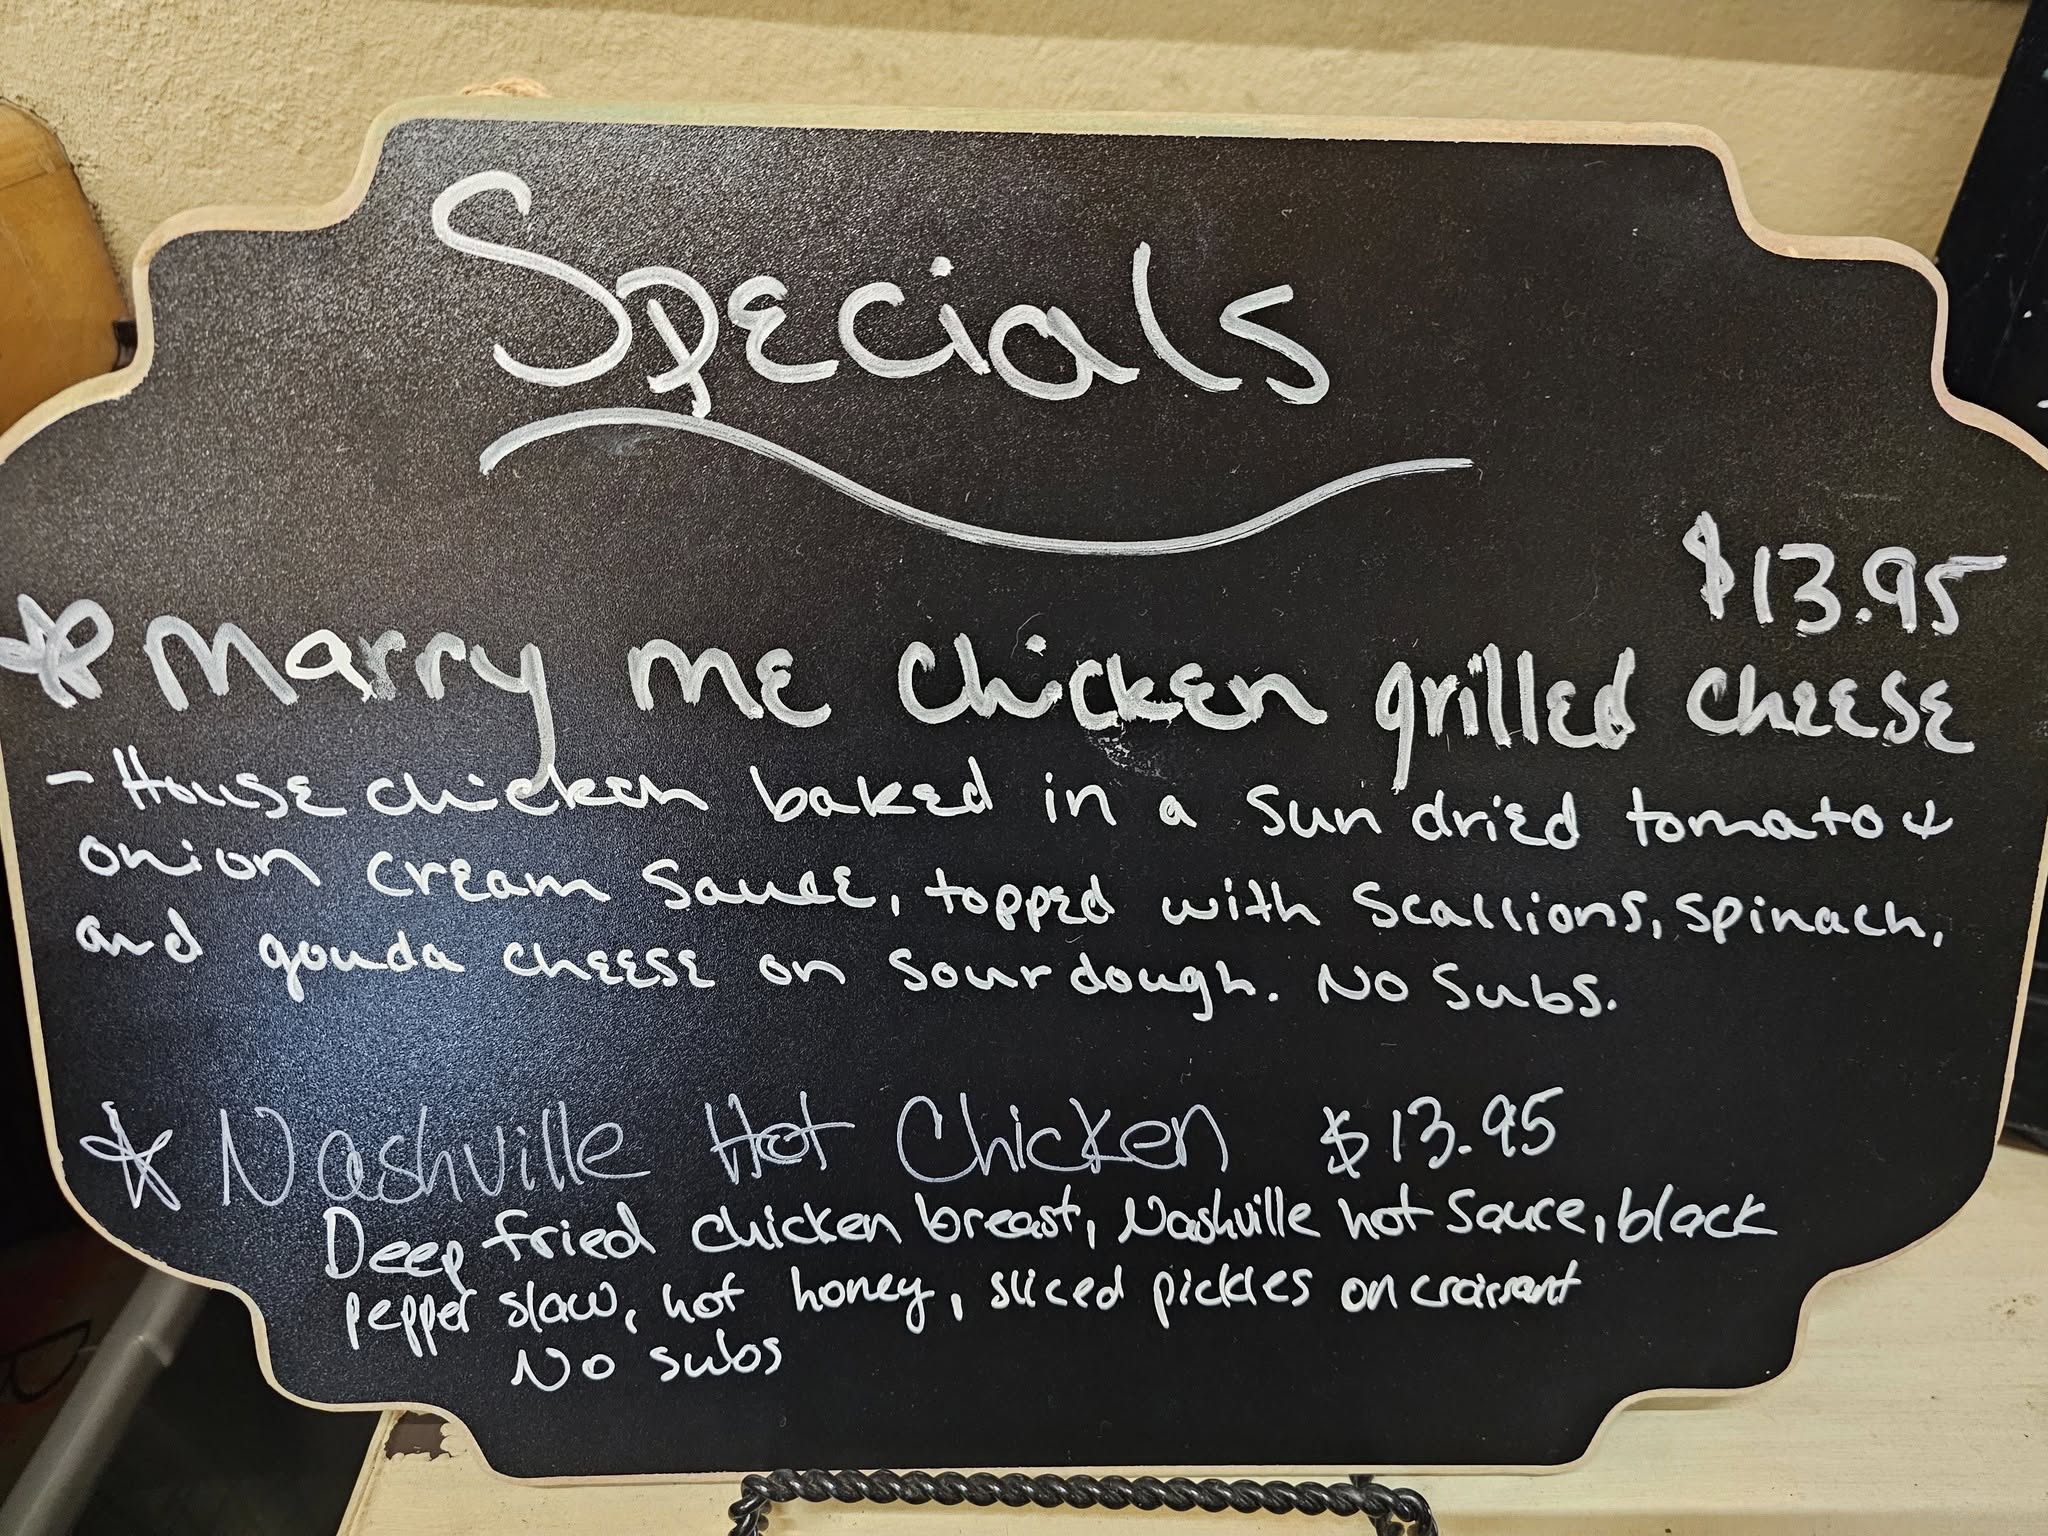 Specials
$13.95
* Marry me chicken grilled cheese
- House chicken baked in a sun dried tomato &
onion cream sauce, topped with scallions, spinach,
and gouda cheese on sourdough. No subs.
* Nashville Hot Chicken $13.95
Deep fried chicken breast, Nashville hot sauce, black
pepper slaw, hot honey, sliced pickles on croissant
No subs